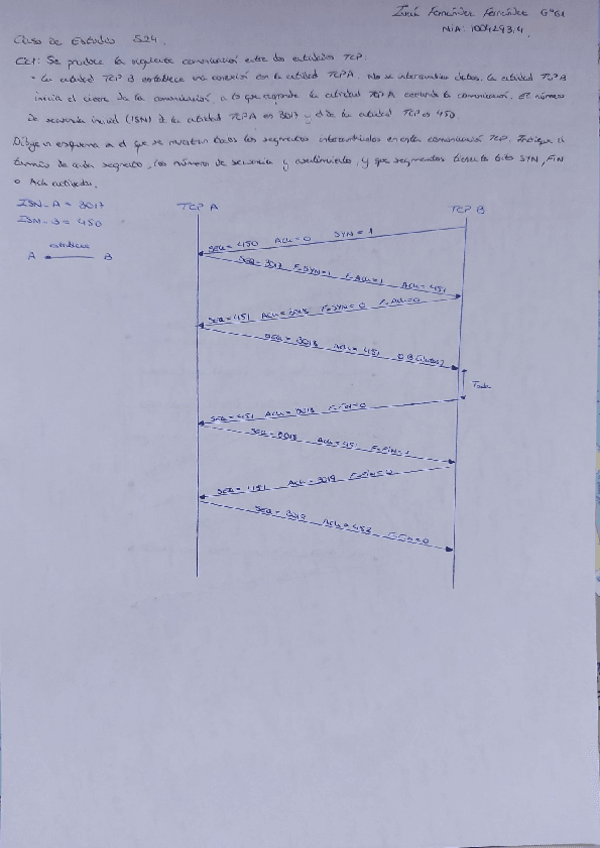 Fernández Fernández G°61
NIA: 100429314
Caso de Estudio S24.
CE1: Se produce la siguiente comunicación entre dos entidades TCP:
· La entidad TCP B establece una conexión con la entidad TCP A. No se intercambian datos. La entidad TCP B
inicia el cierre de la comunicación, a lo que responde la entidad TCP A cerrando la comunicación. El número
de secuencia inicial (ISN) de la entidad TCP A es 3017 y el de la entidad TCP es 450.
Dibuje un esquema en el que se muestren todos los segmentos intercambiados en esta comunicación TCP. Indique el
tamaño de cada segmento, los números de secuencia y asentimiento, y que segmentos tienen los bits SYN, FIN
o Ack activados.
ISN_A = 3017
ISN_ = 450
establece
A B
TCP A TCP B
SEQ = 450 Ack = 0 SYN = 1
SEQ = 3017 F-SYN=1 F-Ack=1 Ack = 451
SEQ = 451 Ack = 3018 F-SYN = 0 F-Ack=0
SEQ = 3018 Ack = 451
SEQ = 451 Ack = 3018 F-FIN=0
SEQ = 3018 Ack = 451 F-FIN=1
SEQ = 451 Ack = 3019
SEQ = 3019 Ack = 453 F-FIN=0